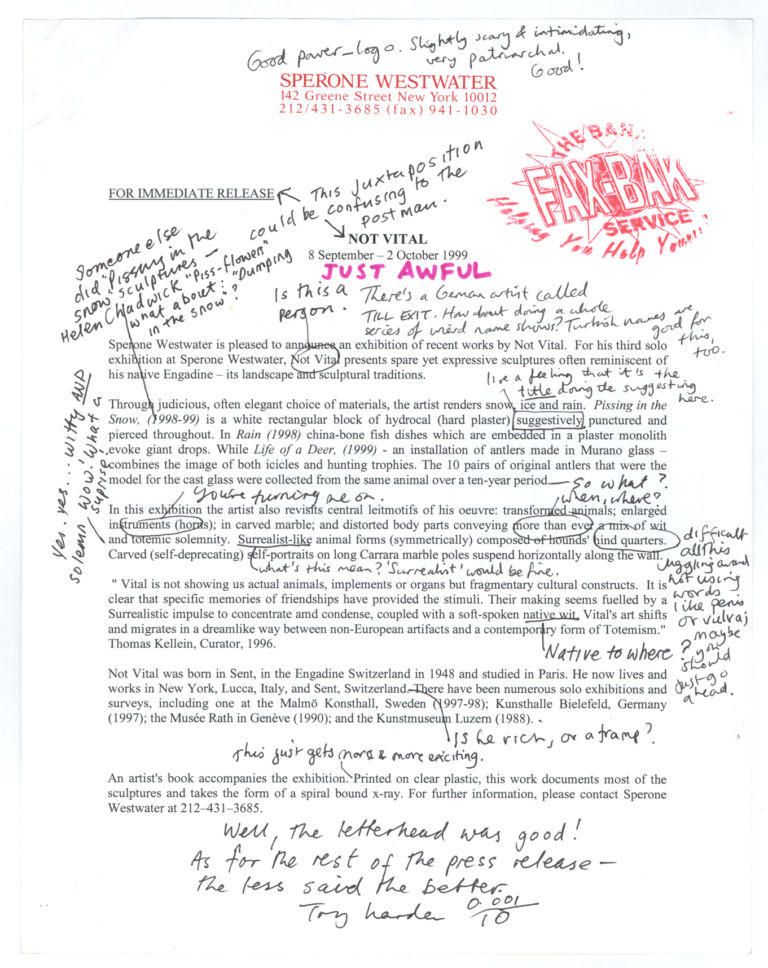 Good power-logo. Slightly scary & intimidating,
very patriarchal.
Good!
SPERONE WESTWATER
142 Greene Street New York 10012
212/431-3685 (fax) 941-1030
THE BANK
FAX-BAK
SERVICE
Helping You Help You!!!
FOR IMMEDIATE RELEASE
This juxtaposition
could be confusing to the
postman.
NOT VITAL
8 September – 2 October 1999
JUST AWFUL
Someone else
did "Pissing in the
snow" sculptures –
Helen Chadwick "Piss-flowers"
what about: "Dumping
in the snow"?
Is this a
person.
There's a German artist called
TILL EXIT. How about doing a whole
series of weird name shows? Turkish names are
good for
this,
too.
Sperone Westwater is pleased to announce an exhibition of recent works by Not Vital. For his third solo
exhibition at Sperone Westwater, Not Vital presents spare yet expressive sculptures often reminiscent of
his native Engadine – its landscape and sculptural traditions.
I've a feeling that it's the
title doing the suggesting
here.
Through judicious, often elegant choice of materials, the artist renders snow, ice and rain. Pissing in the
Snow, (1998-99) is a white rectangular block of hydrocal (hard plaster) suggestively punctured and
pierced throughout. In Rain (1998) china-bone fish dishes which are embedded in a plaster monolith
evoke giant drops. While Life of a Deer, (1999) - an installation of antlers made in Murano glass –
combines the image of both icicles and hunting trophies. The 10 pairs of original antlers that were the
model for the cast glass were collected from the same animal over a ten-year period.
So what?
You're turning me on.
when, where?
Yes. yes... witty AND
solemn. Wow! What a
suprise.
In this exhibition the artist also revisits central leitmotifs of his oeuvre: transformed animals; enlarged
instruments (horns); in carved marble; and distorted body parts conveying more than ever a mix of wit
and totemic solemnity. Surrealist-like animal forms (symmetrically) composed of hounds' hind quarters.
Carved (self-deprecating) self-portraits on long Carrara marble poles suspend horizontally along the wall.
what's this mean? 'Surrealist' would be fine.
difficult
all this
juggling around
not using
words
like penis
or vulva;
maybe
you
should
just go
ahead.
" Vital is not showing us actual animals, implements or organs but fragmentary cultural constructs. It is
clear that specific memories of friendships have provided the stimuli. Their making seems fuelled by a
Surrealistic impulse to concentrate amd condense, coupled with a soft-spoken native wit. Vital's art shifts
and migrates in a dreamlike way between non-European artifacts and a contemporary form of Totemism."
Thomas Kellein, Curator, 1996.
Native to where?
Not Vital was born in Sent, in the Engadine Switzerland in 1948 and studied in Paris. He now lives and
works in New York, Lucca, Italy, and Sent, Switzerland. There have been numerous solo exhibitions and
surveys, including one at the Malmö Konsthall, Sweden (1997-98); Kunsthalle Bielefeld, Germany
(1997); the Musée Rath in Genève (1990); and the Kunstmuseum Luzern (1988).
Is he rich, or a tramp?
This just gets more & more exciting.
An artist's book accompanies the exhibition. Printed on clear plastic, this work documents most of the
sculptures and takes the form of a spiral bound x-ray. For further information, please contact Sperone
Westwater at 212–431–3685.
Well, the letterhead was good!
As for the rest of the press release –
the less said the better.
Try harder 0.001/10